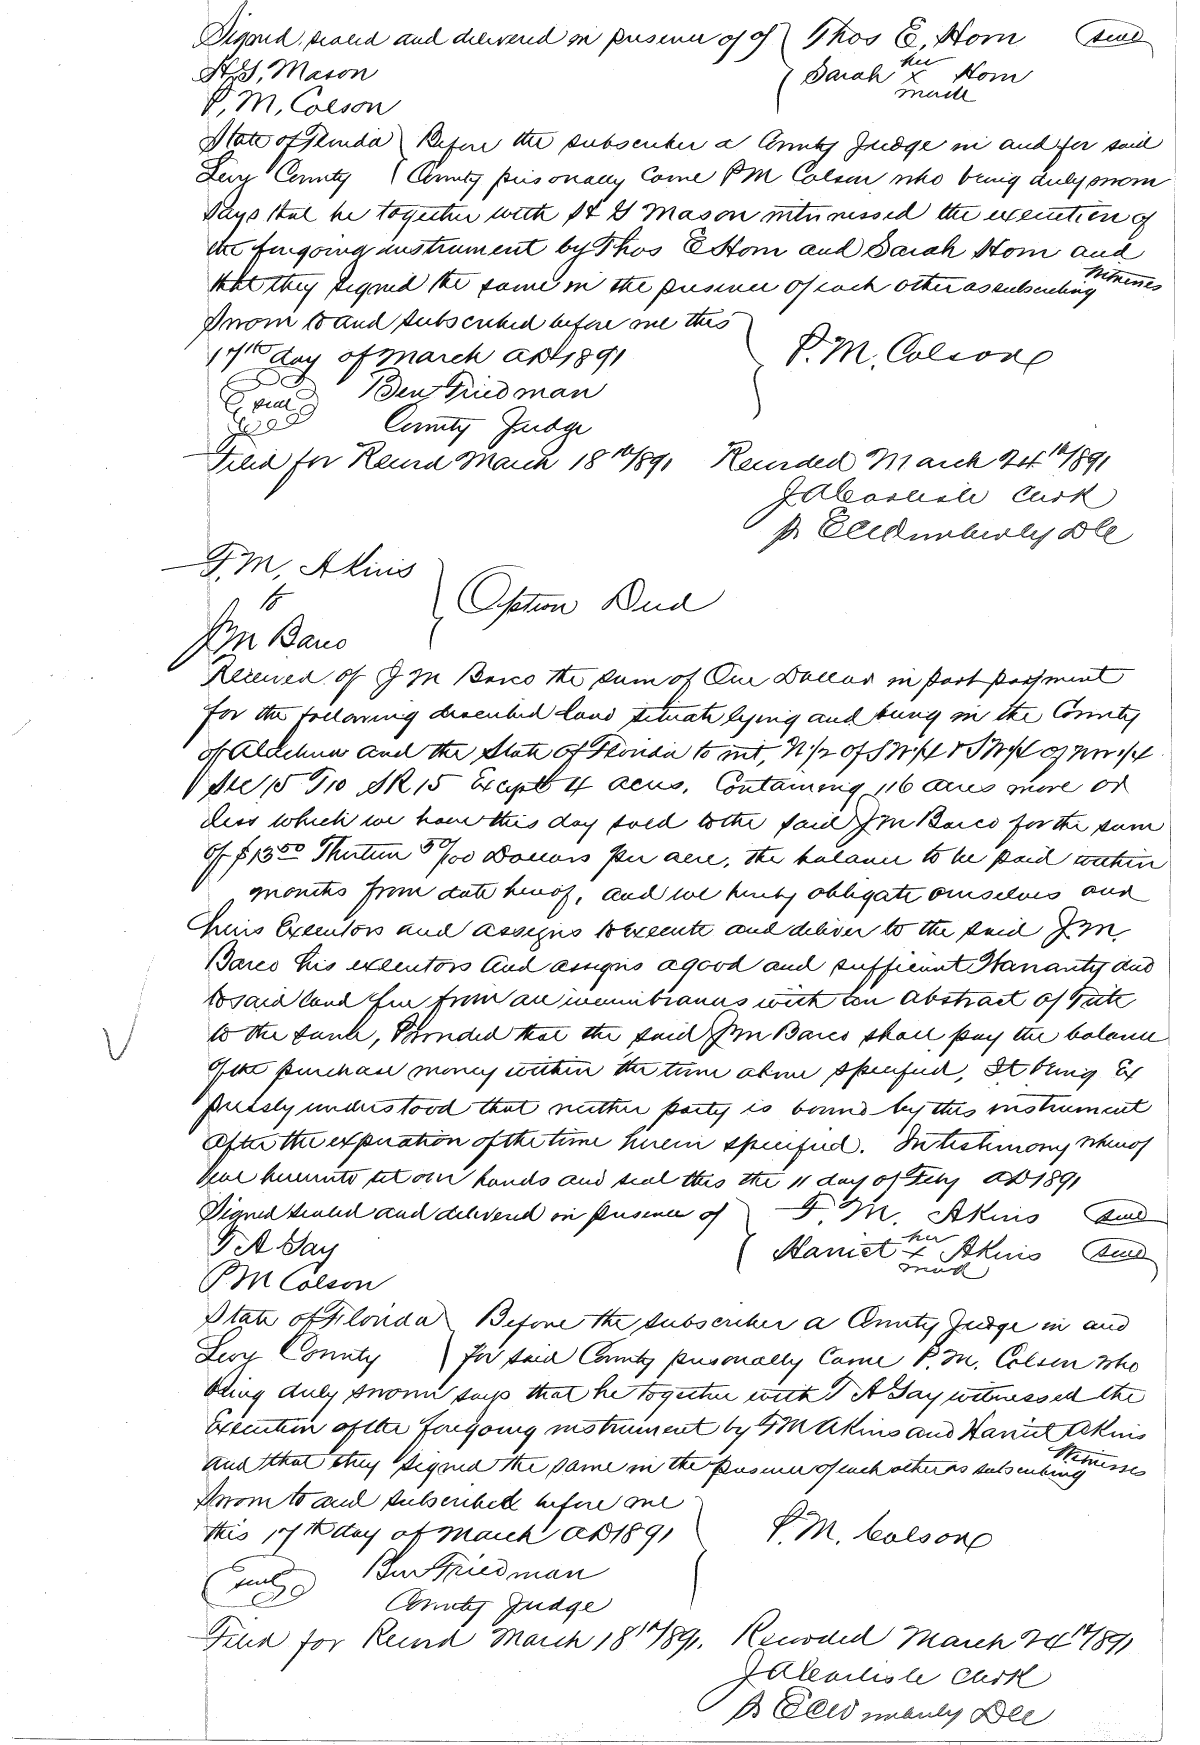 Signed, sealed and delivered in presence of of Thos E. Horn seal
H. G. Mason Sarah her x mark Horn
P. M. Colson
State of Florida Before the subscriber a County Judge in and for said
Levy County County personally came P M Colson who being duly sworn
says that he together with H G Mason witnessed the execution of
the foregoing instrument by Thos E Horn and Sarah Horn and
that they signed the same in the presence of each other as subscribing Witnesses
Sworn to and subscribed before me this
17th day of March AD 1891 P. M. Colson
seal Ben Friedman
County Judge
Filed for Record March 18th 1891 Recorded March 24th 1891
J A Carlisle Clerk
pr Dc
F. M. Akins
to Option Deed
J M Barco
Received of J M Barco the sum of One Dollar in part payment
for the following described land situate lying and being in the County
of Alachua and the State of Florida to wit, N 1/2 of SW 1/4 & SW 1/4 of NW 1/4
Sec 15 T 10 S R 15 Except 4 acres. Containing 116 acres more or
less which we have this day sold to the said J M Barco for the sum
of $13 50 Thirteen 50/00 Dollars per acre, the balance to be paid within
months from date hereof, and we hereby obligate ourselves and
heirs Executors and assigns to execute and deliver to the said J. M.
Barco his executors and assigns a good and sufficient Warranty deed
to said land free from all incumbrances with an abstract of Title
to the same, Provided that the said J M Barco shall pay the balance
of the purchase money within the time above specified, It being Ex
pressly understood that neither party is bound by this instrument
after the expiration of the time herein specified. In testimony whereof
we hereunto set our hands and seal this the 11 day of Feby AD 1891
Signed sealed and delivered in presence of F. M. Akins seal
T A Gay Harriet her x mark Akins seal
P M Colson
State of Florida Before the subscriber a County Judge in and
Levy County for said County personally came P. M. Colson who
being duly sworn says that he together with T A Gay witnessed the
Execution of the foregoing instrument by F M Akins and Harriet Akins
and that they signed the same in the presence of each other as subscribing Witnesses
Sworn to and subscribed before me
this 17th day of March AD 1891 P. M. Colson
seal Ben Friedman
County Judge
Filed for Record March 18th 1891. Recorded March 24th 1891
J A Carlisle Clerk
pr Dc